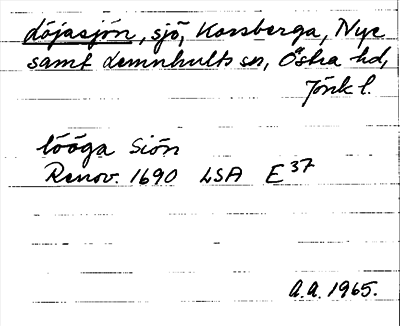 Löjasjön, sjö, Korsberga, Nye
samt Lemnhults sn, Östra hd,
Jönk l.
lööga Siön
Renov. 1690 LSA E37
A.A. 1965.